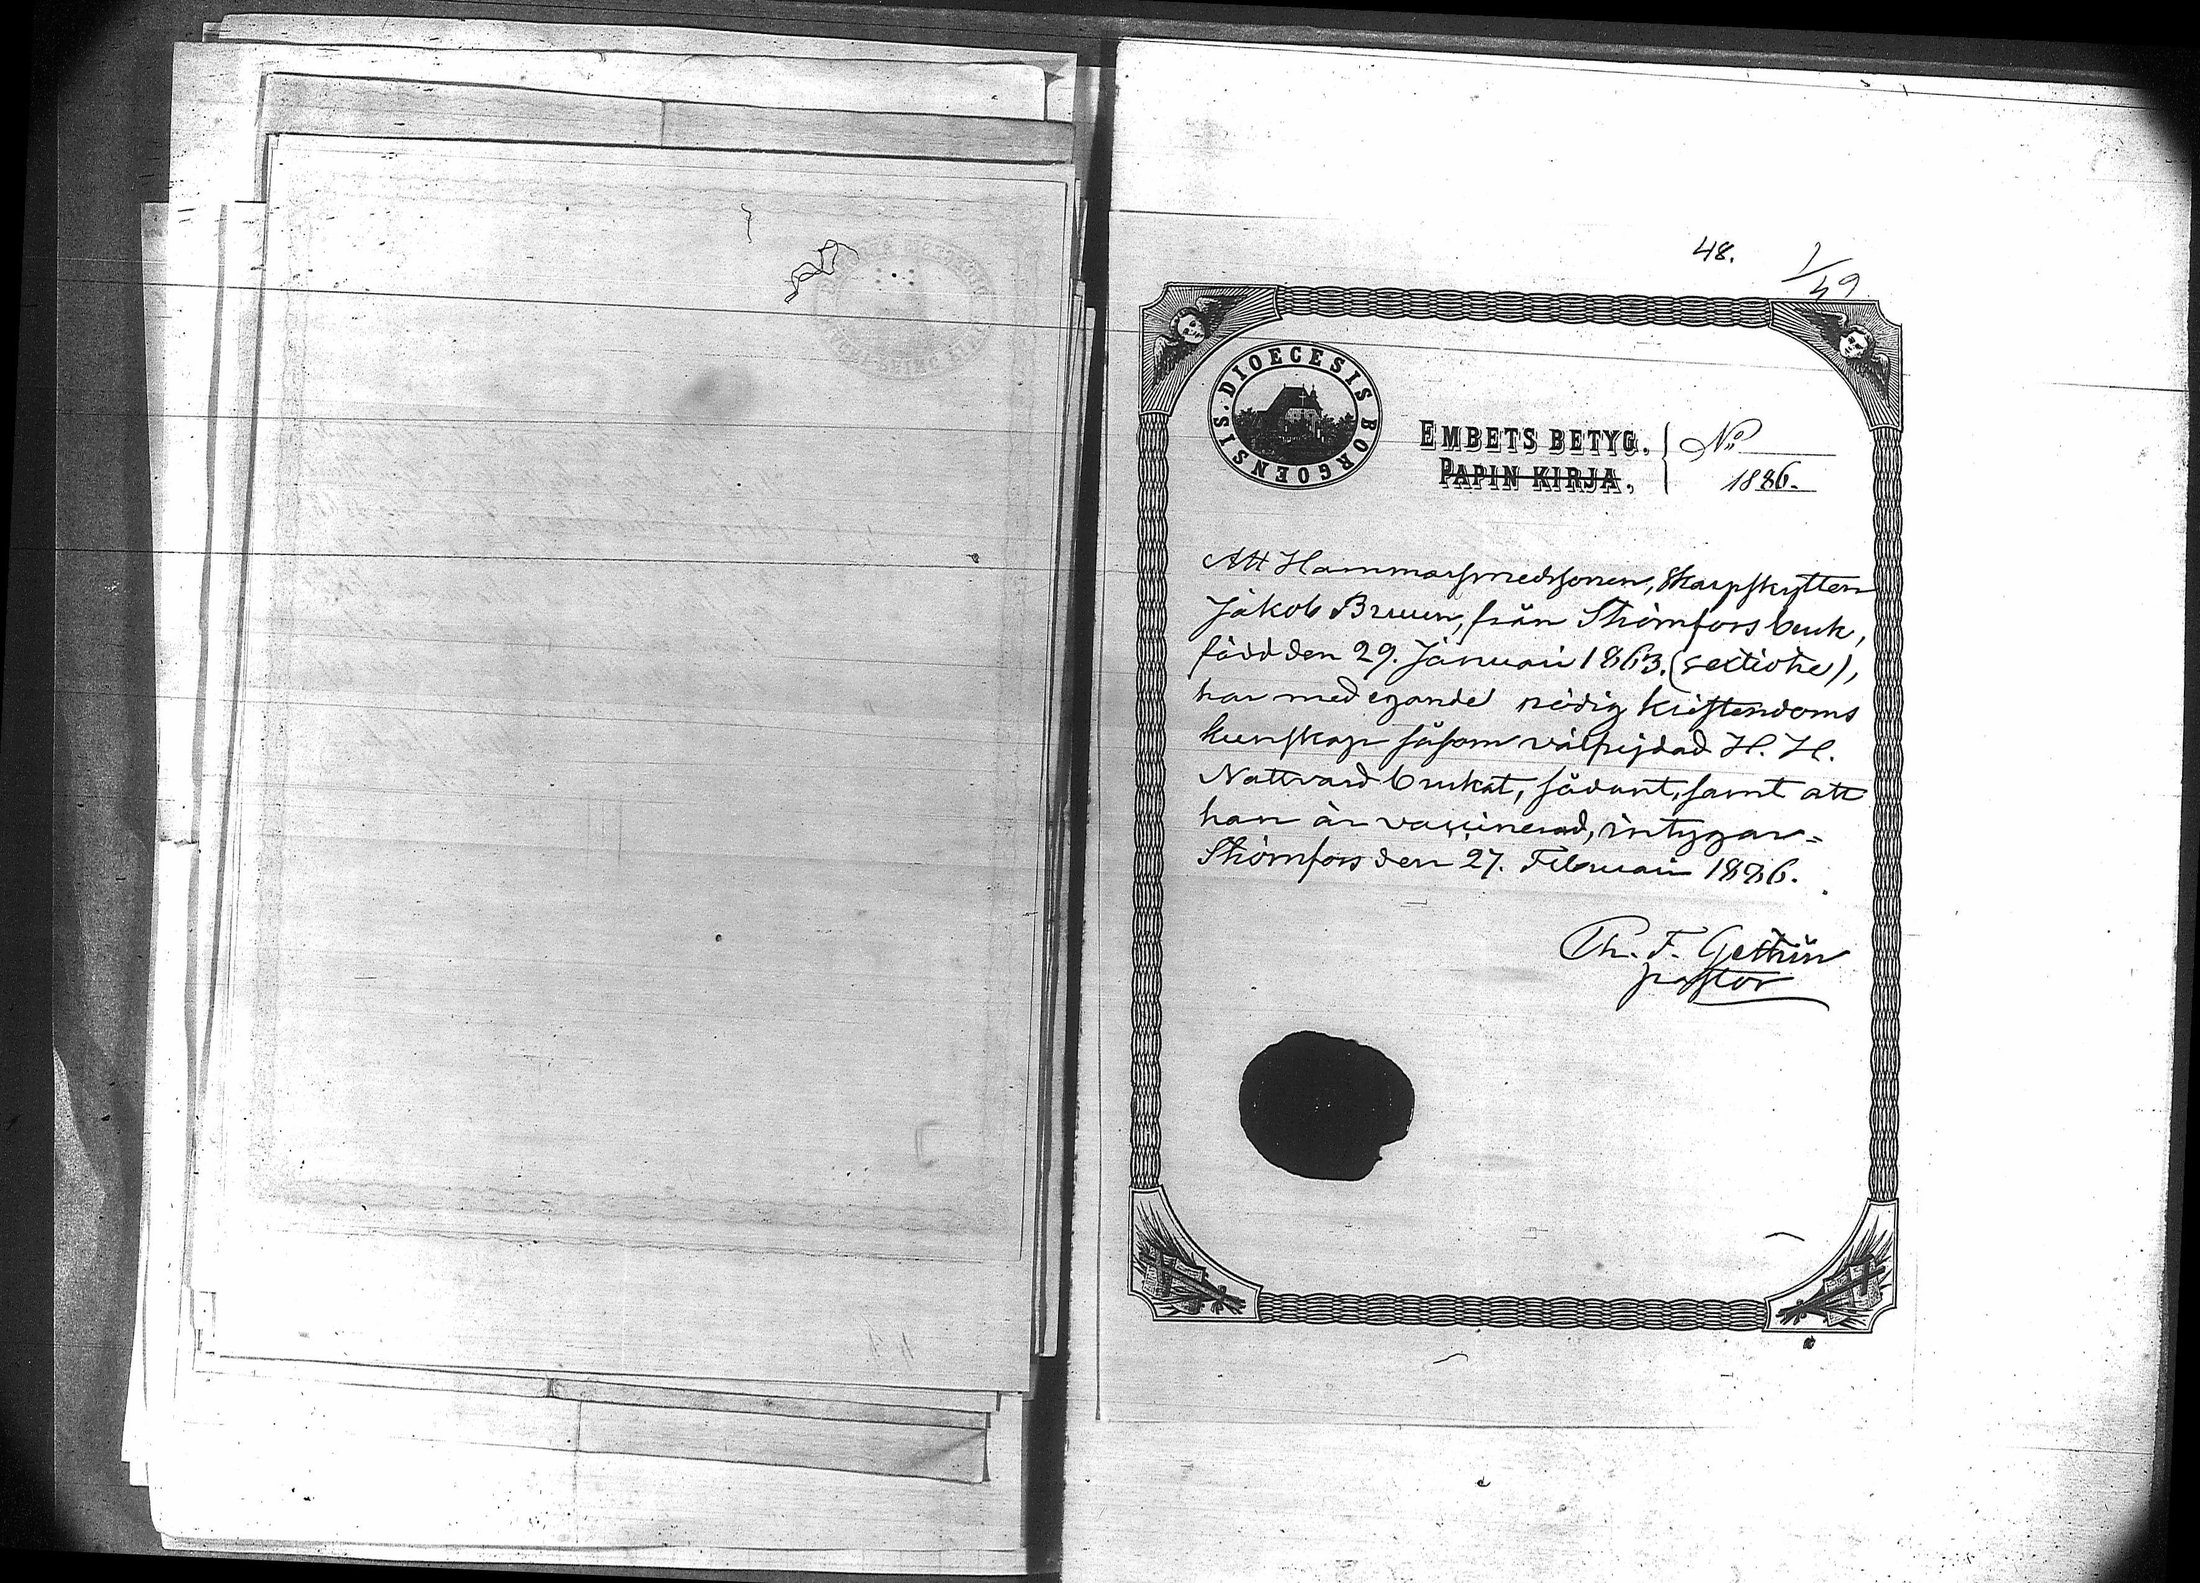 48. 1/49
DIOECESIS BORGOENSIS.
EMBETS BETYG.
PAPIN KIRJA,
No
1886.
Att Hammarsmedssonen, Skarpskytten
Jakob Bruun, från Strömfors bruk,
född den 29. Januari 1863. (sextiotre),
har med egande nödig kristendoms
kunskap såsom välfrejdad H. H.
Nattvard brukat, sådant, samt att
han är vaccinerad, intygar=
Strömfors den 27. Februari 1886.
Th. F. Gestrin
pastor